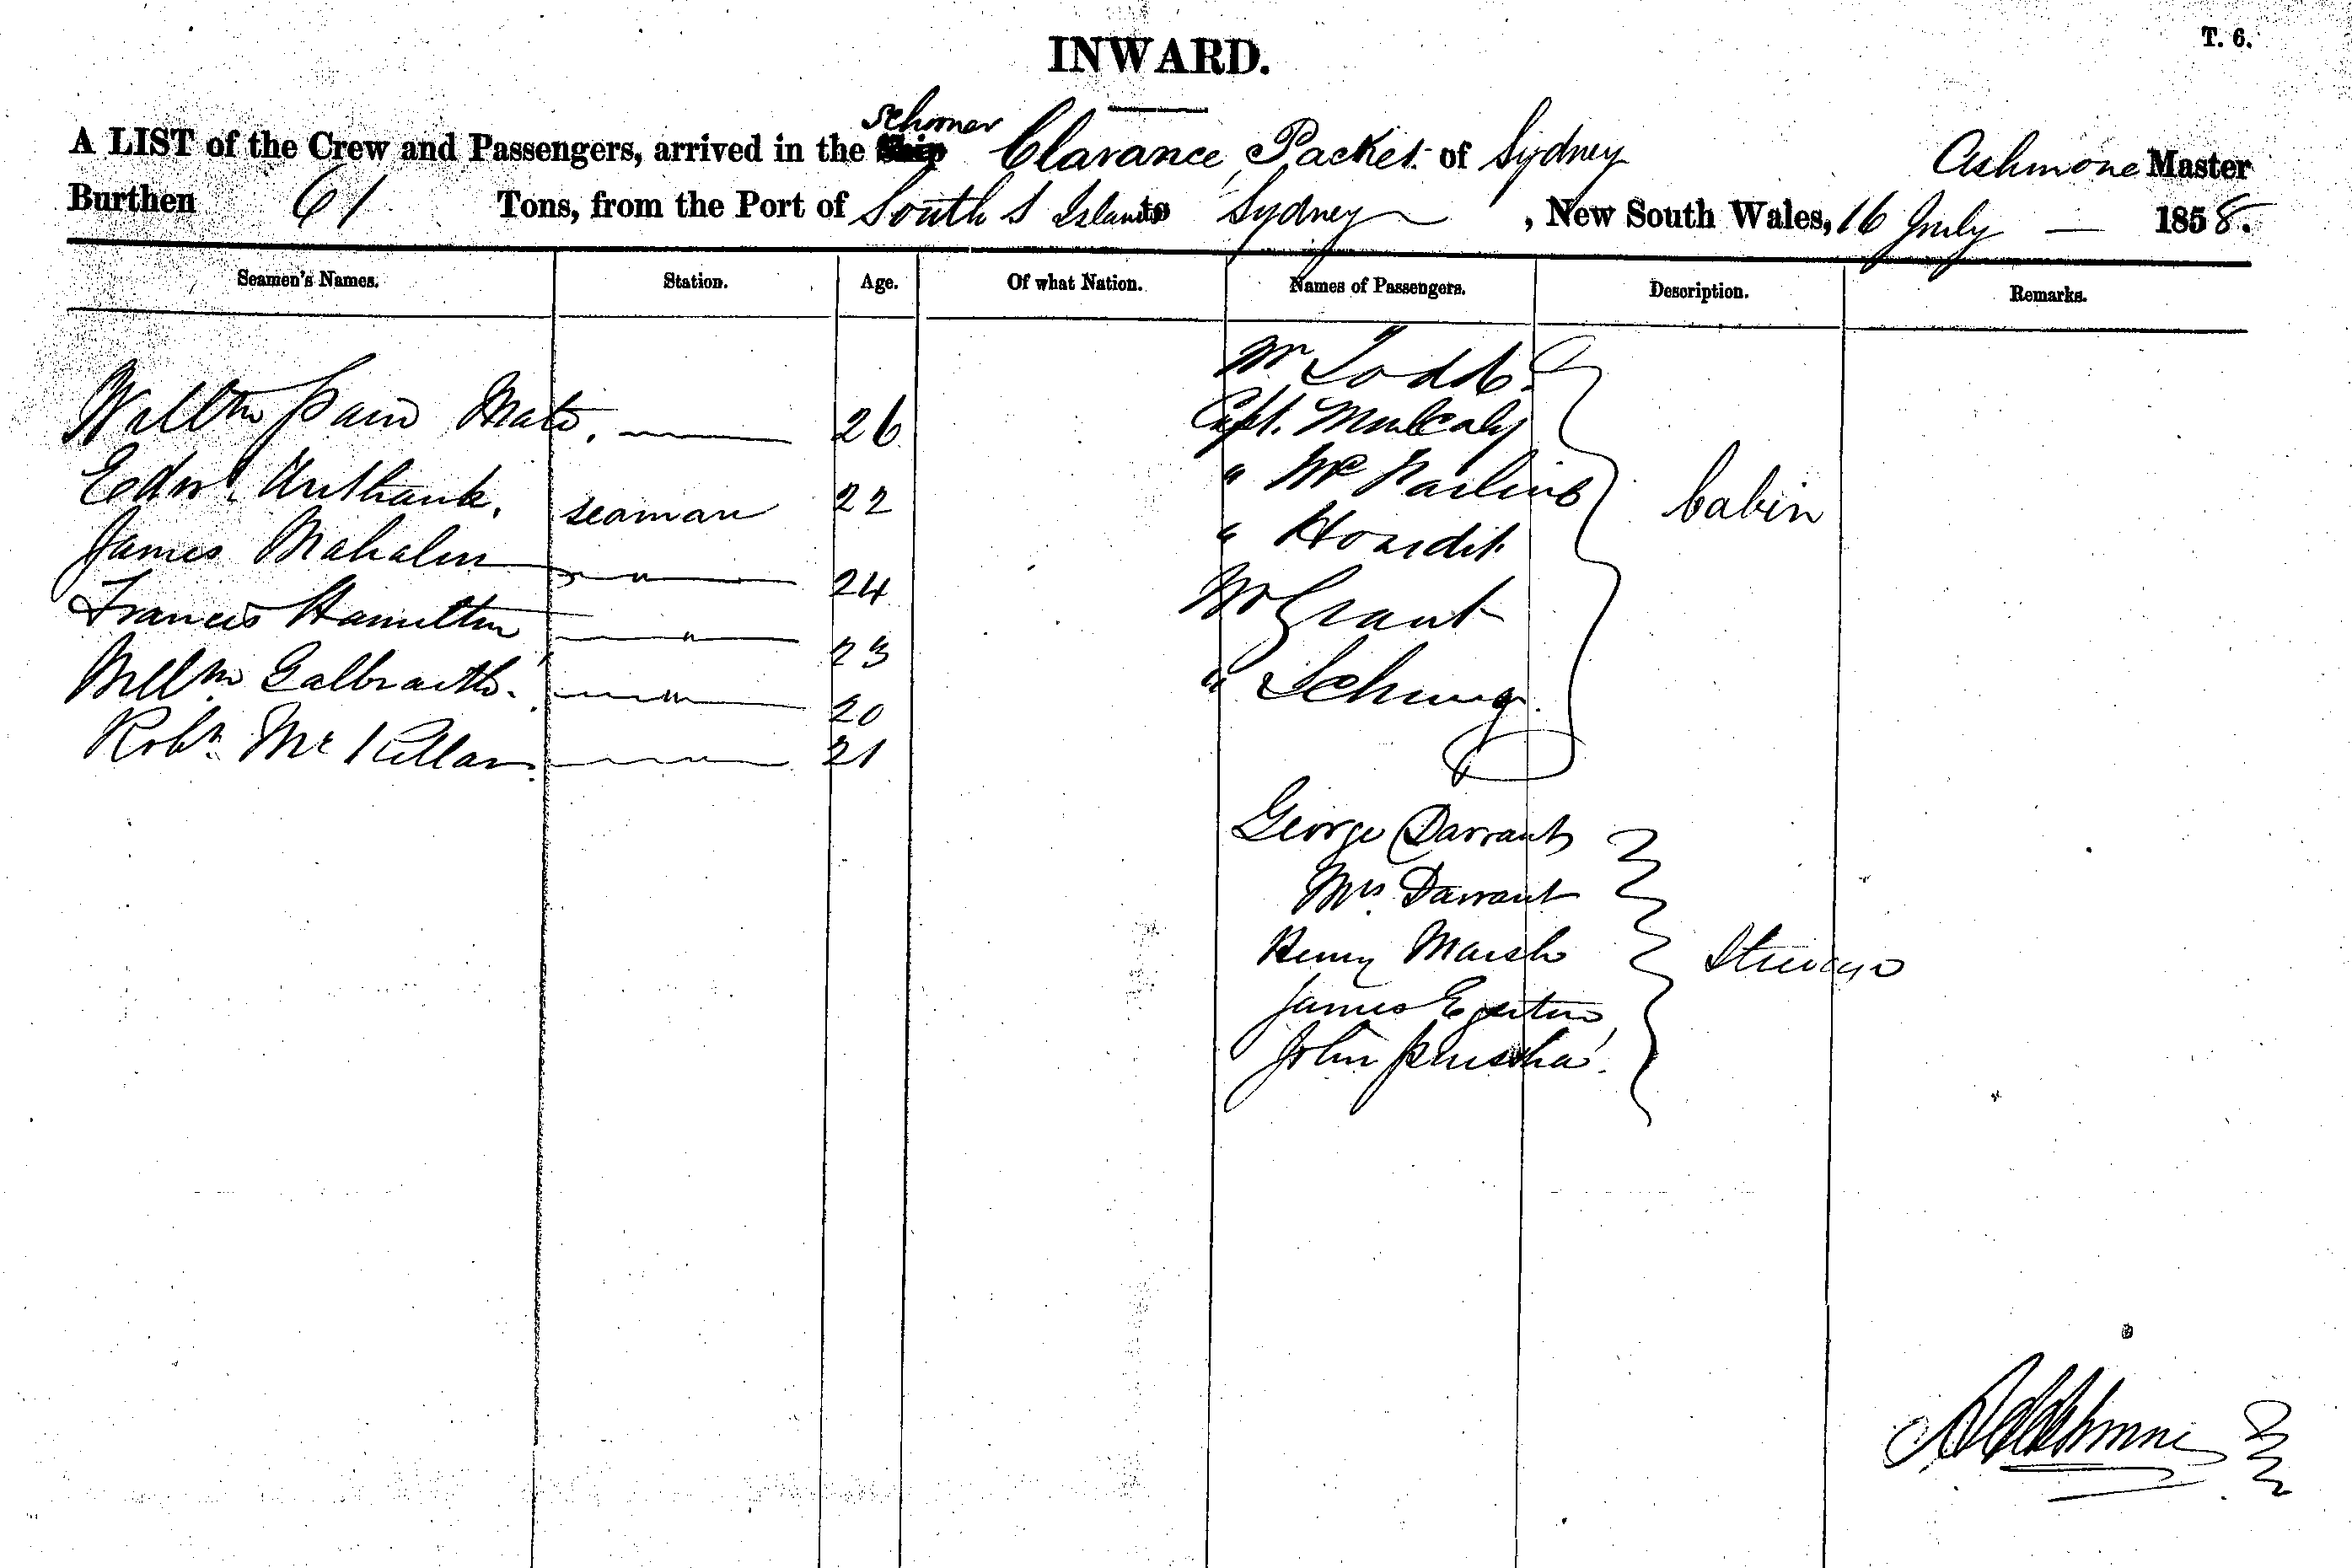 T. 6.
INWARD.
Schooner
A LIST of the Crew and Passengers, arrived in the Ship Clarance Packet of Sydney Ashmore Master
Burthen 61 Tons, from the Port of South S Islands to Sydney, New South Wales, 16 July — 1858.
Seamen's Names. Station. Age. Of what Nation. Names of Passengers. Description. Remarks.
Mr Todd
Willm Pain Mate. 26 Capt. Mulcahy
Edwd. Unthank. seaman 22 " Mc Cabin
James Mahalin " 24 "
Francis Hamilton " 23 Mr Grant
Willm Galbraith. " 20 "
Robt. Mc Killan. 21
George Darrant
Mrs. Darrant
Henry Marsh Steerage
James Egerton
John